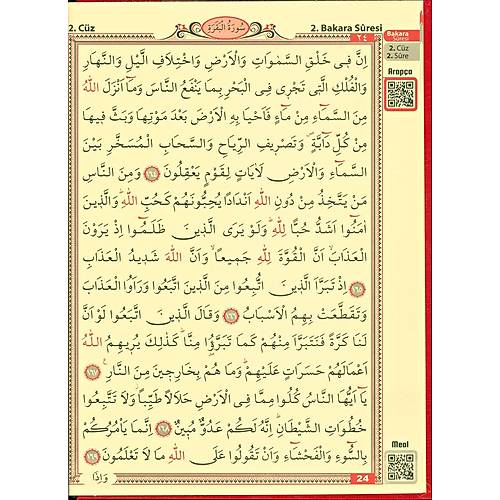 2. Cüz
سُورَةُ الْبَقَرَةِ
2. Bakara Sûresi
Bakara
Sûresi
٢٤
2. Cüz
2. Sûre
Arapça
اِنَّ فٖى خَلْقِ السَّمٰوَاتِ وَالْاَرْضِ وَاخْتِلَافِ الَّيْلِ وَالنَّهَارِ
وَالْفُلْكِ الَّتٖى تَجْرٖى فِى الْبَحْرِ بِمَا يَنْفَعُ النَّاسَ وَمَٓا اَنْزَلَ اللّٰهُ
مِنَ السَّمَٓاءِ مِنْ مَٓاءٍ فَاَحْيَا بِهِ الْاَرْضَ بَعْدَ مَوْتِهَا وَبَثَّ فٖيهَا
مِنْ كُلِّ دَٓابَّةٍ وَتَصْرٖيفِ الرِّيَاحِ وَالسَّحَابِ الْمُسَخَّرِ بَيْنَ
السَّمَٓاءِ وَالْاَرْضِ لَاٰيَاتٍ لِقَوْمٍ يَعْقِلُونَ ﴿١٦٤﴾ وَمِنَ النَّاسِ
مَنْ يَتَّخِذُ مِنْ دُونِ اللّٰهِ اَنْدَادًا يُحِبُّونَهُمْ كَحُبِّ اللّٰهِ وَالَّذٖينَ
اٰمَنُٓوا اَشَدُّ حُبًّا لِلّٰهِ وَلَوْ يَرَى الَّذٖينَ ظَلَمُٓوا اِذْ يَرَوْنَ
الْعَذَابَ اَنَّ الْقُوَّةَ لِلّٰهِ جَمٖيعًا وَاَنَّ اللّٰهَ شَدٖيدُ الْعَذَابِ
﴿١٦٥﴾ اِذْ تَبَرَّاَ الَّذٖينَ اتُّبِعُوا مِنَ الَّذٖينَ اتَّبَعُوا وَرَاَوُا الْعَذَابَ
وَتَقَطَّعَتْ بِهِمُ الْاَسْبَابُ ﴿١٦٦﴾ وَقَالَ الَّذٖينَ اتَّبَعُوا لَوْ اَنَّ
لَنَا كَرَّةً فَنَتَبَرَّاَ مِنْهُمْ كَمَا تَبَرَّؤُ۫ا مِنَّا كَذٰلِكَ يُرٖيهِمُ اللّٰهُ
اَعْمَالَهُمْ حَسَرَاتٍ عَلَيْهِمْ وَمَا هُمْ بِخَارِجٖينَ مِنَ النَّارِ ﴿١٦٧﴾
يَٓا اَيُّهَا النَّاسُ كُلُوا مِمَّا فِى الْاَرْضِ حَلَالًا طَيِّبًا وَلَا تَتَّبِعُوا
خُطُوَاتِ الشَّيْطَانِ اِنَّهُ لَكُمْ عَدُوٌّ مُبٖينٌ ﴿١٦٨﴾ اِنَّمَا يَاْمُرُكُمْ
بِالسُّٓوءِ وَالْفَحْشَٓاءِ وَاَنْ تَقُولُوا عَلَى اللّٰهِ مَا لَا تَعْلَمُونَ ﴿١٦٩﴾
Meal
وَاِذَا
24